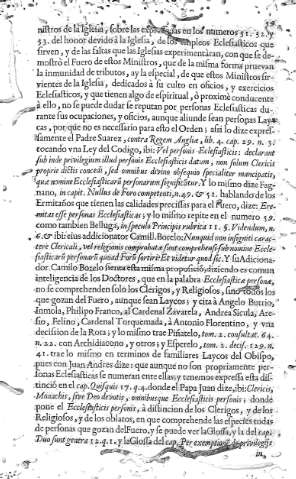 nistros de la Iglesia, sobre las expressas en los numeros 31. 32. y
33. del honor devido à la Iglesia, de los empleos Eclesiasticos que
sirven, y de las faltas que las Iglesias experimentàran, con que se de-
mostrò el Fuero de estos Ministros, que de la misma forma prueban
la inmunidad de tributos, ay la especial, de que estos Ministros sir-
vientes de la Iglesia, dedicados à su culto en oficios, y exercicios
Eclesiasticos, y que tienen algo de espiritual, ò proximo conducente
à ello, no se puede dudar se reputan por personas Eclesiasticas du-
rante sus ocupaciones, y oficios, aunque aliunde sean personas Lay-
cas, por que no es necessario para esto el Orden; assi lo dize expres-
samente el Padre Suarez, contra Regem Angliæ, lib. 4. cap. 29. n. 3.
tocando vna Ley del Codigo, ibi: Vel personis Ecclesiasticis: declarant
sub inde privilegium illud personis Ecclesiasticis datum, non solum Clericis
proprie dictis concedi, sed omnibus divino obsequio specialiter mancipatis,
quæ nomine Ecclesiasticarũ personarum significãtur. Y lo mismo dize Fag-
nano, in capit. Nullus de Foro competenti, n. 49. & 51. hablando de los
Ermitaños que tienen las calidades precissas para el Fuero, dize: Ere-
mitas esse personas Ecclesiasticas; y lo mismo repite en el numero 59.
como tambien Belluga, in speculo Principis rubrica 11. §. Videndum, n.
6. & ibi eius addicionator Camill. Bozelo: Nunquid non insigniti caracte-
re Clericali, vel religionis comprobatæ sint comprehensi sub nomine Eccle-
siasticarũ personarũ quoad Furti surtir? Et videtur quod sic. Y su Adiciona-
dor Camilo Bozelo sienta esta misma proposiciõ, diziendo es comun
inteligencia de los Doctores, que en la palabra Ecclesiasticæ personæ,
no se comprehenden solo los Clerigos, y Religiosos, sino todos los
que gozan del Fuero, aunque sean Laycos; y cita à Angelo Butrio,
Immola, Philipo Franco, al Cardenal Zavarela, Andrea Sicula, Are-
tino, Felino, Cardenal Turquemada, à Antonio Florentino, y vna
decission de la Rota; y lo mismo trae Piñatelo, tom. 2. consultat. 64.
n. 22. con Archidiacono, y otros; y Esperelo, tom. 2. decis. 129. n.
41. trae lo mismo en terminos de familiares Laycos del Obispo,
pues con Juan Andres dize: que aunque no son propriamente per-
sonas Eclesiasticas se numeran entre ellas; y tenemos expressa esta dis-
tinciõ en el cap. Quisquis 17. q. 4. donde el Papa Juan dize, ibi: Clericis,
Monachis, sive Deo devotis, omnibusque Ecclesiasticis personis; donde
pone el Ecclesiasticis personis, à distincion de los Clerigos, y de los
Religiosos, y de los oblatos, en que comprehende las especies todas
de personas que gozan del Fuero, y se puede ver la Glossa, y la del cap.
Duo sunt genera 12. q. 1. y la Glossa del cap. Per exemptionem de privilegijs
in